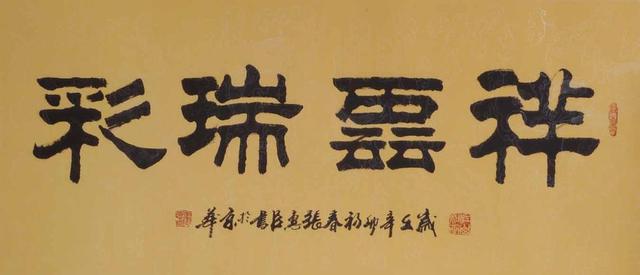 祥雲瑞彩
歲在辛卯初春張惠臣書於京華